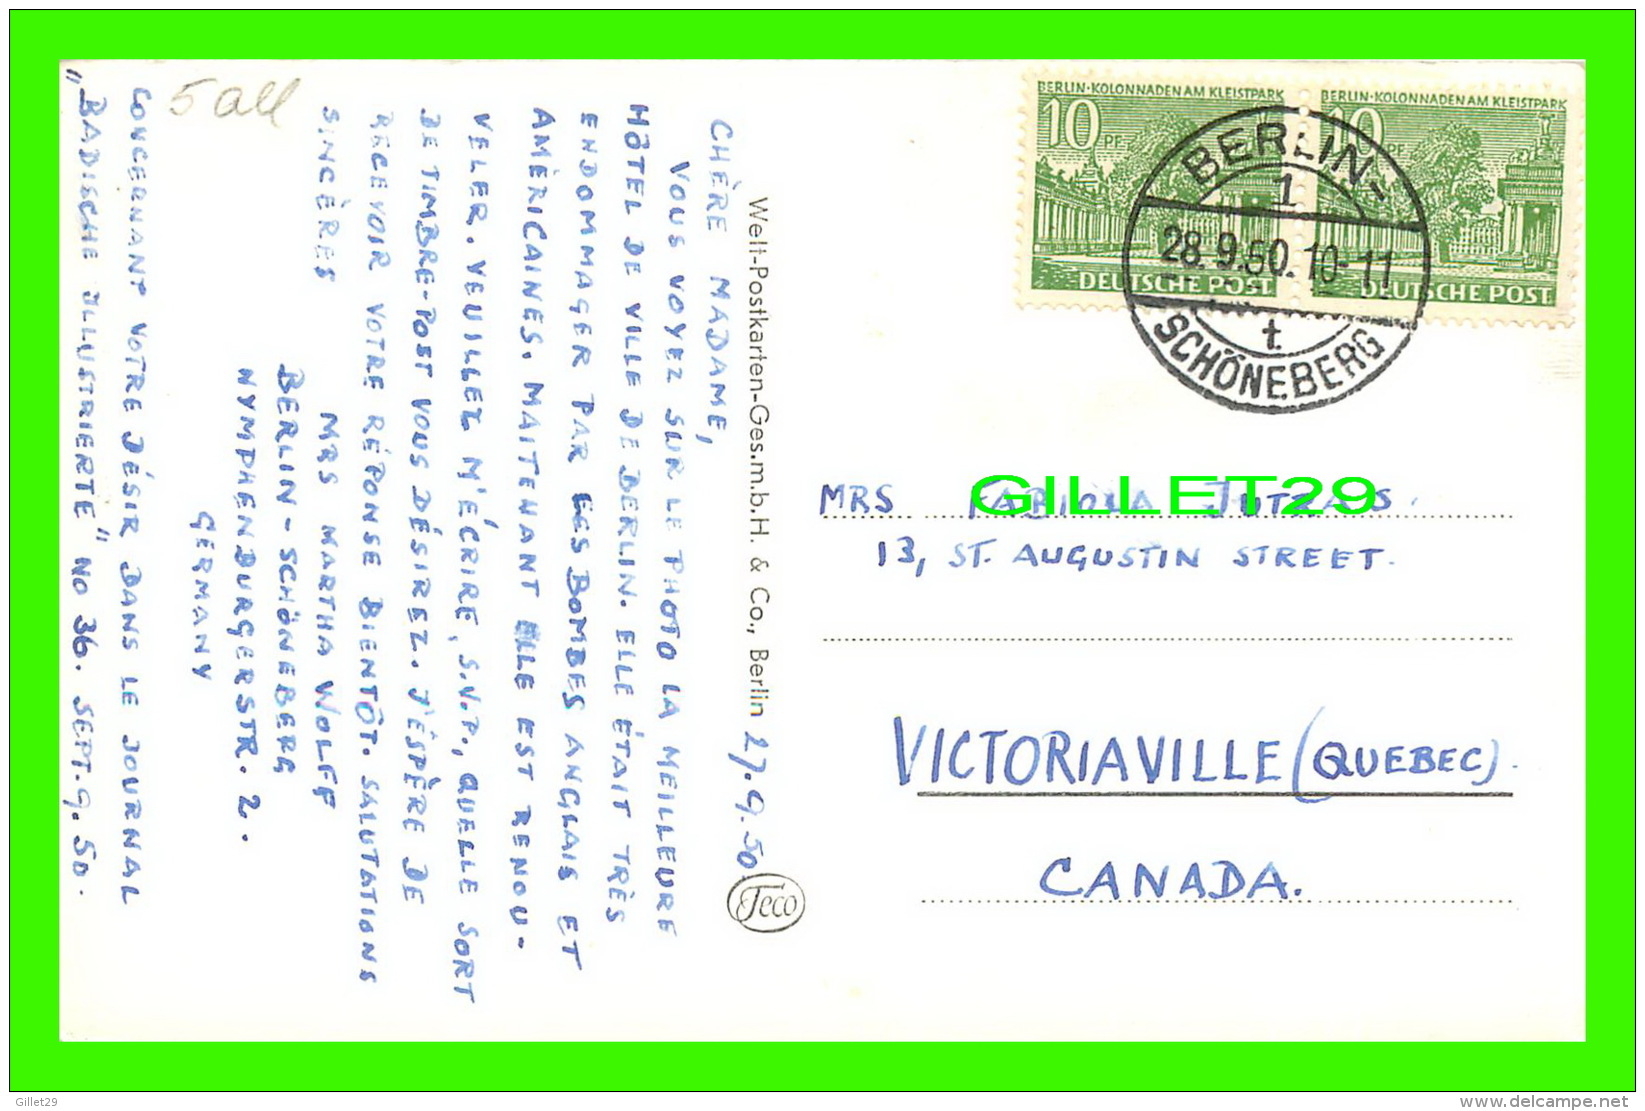 5 all
27.9.50.
CHÈRE MADAME,
VOUS VOYEZ SUR LE PHOTO LA MEILLEURE
HÔTEL DE VILLE DE BERLIN. ELLE ÉTAIT TRÈS
ENDOMMAGER PAR LES BOMBES ANGLAIS ET
AMÉRICAINES. MAITENANT ELLE EST RENOU-
VELER. VEUILLEZ M'ÉCRIRE, S.V.P., QUELLE SORT
DE TIMBRE-POST VOUS DÉSIREZ. J'ESPÈRE DE
RECEVOIR VOTRE RÉPONSE BIENTÔT. SALUTATIONS
SINCÈRES
MRS MARTHA WOLFF
BERLIN-SCHÖNEBERG
NYMPHENBURGERSTR. 2.
GERMANY
CONCERNANT VOTRE DÉSIR DANS LE JOURNAL
„BADISCHE ILLUSTRIERTE" NO 36. SEPT. 9. 50.
Welt-Postkarten-Ges.m.b.H. & Co., Berlin
Teco
BERLIN-KOLONNADEN AM KLEISTPARK
10 PF
DEUTSCHE POST
BERLIN-KOLONNADEN AM KLEISTPARK
10 PF
DEUTSCHE POST
BERLIN-
1
28.9.50.10-11
t
SCHÖNEBERG
GILLET29
MRS FABIOLA
13, ST. AUGUSTIN STREET.
VICTORIAVILLE (QUEBEC).
CANADA.
Gillet29
www.delcampe.net